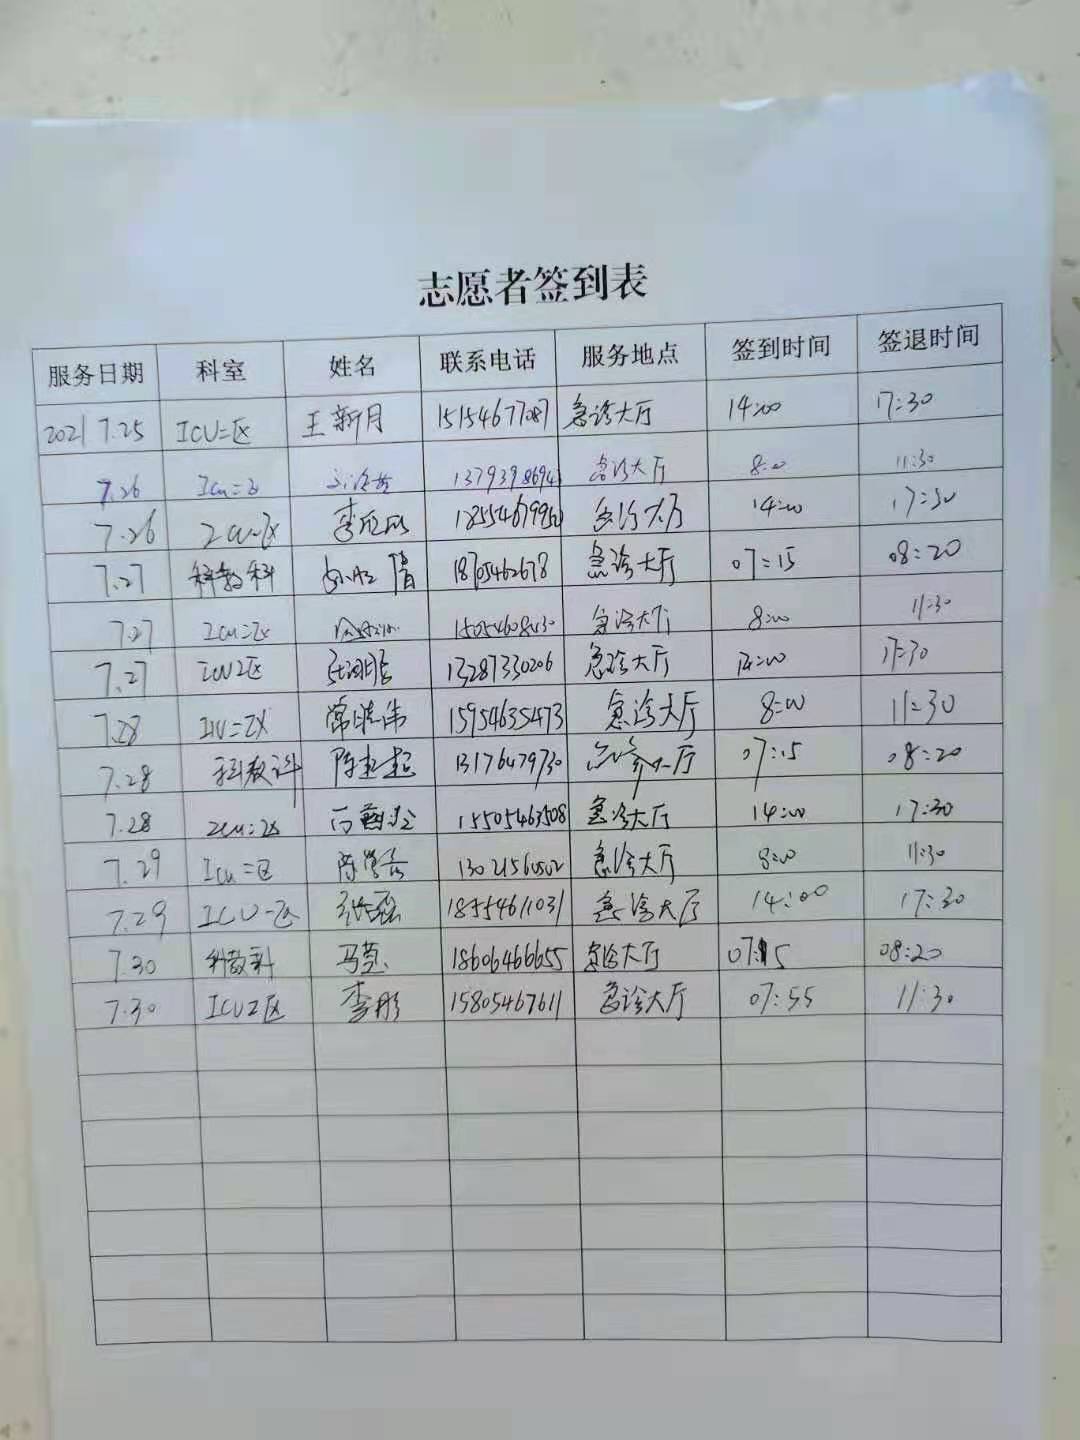 志愿者签到表
服务日期 科室 姓名 联系电话 服务地点 签到时间 签退时间
2021 7.25 ICU二区 王新月 15154677087 急诊大厅 14:00 17:30
7.26 Icu二区 急诊大厅 8:00 11:30
7.26 急诊大厅 14:00 17:30
7.27 科教科 急诊大厅 07:15 08:20
7.27 Icu二区 急诊大厅 8:00 11:30
7.27 ICU2区 13287330206 急诊大厅 17:30
7.28 常晓伟 15954635473 急诊大厅 8:00 11:30
7.28 科教科 13176479730 07:15 08:20
7.28 15505463508 急诊大厅 14:00 17:30
7.29 Icu二区 急诊大厅 8:00 11:30
7.29 18554611031 急诊大厅 14:00 17:30
7.30 科教科 18606466655 急诊大厅 07:15 08:20
7.30 ICU2区 李彤 15805467611 急诊大厅 07:55 11:30